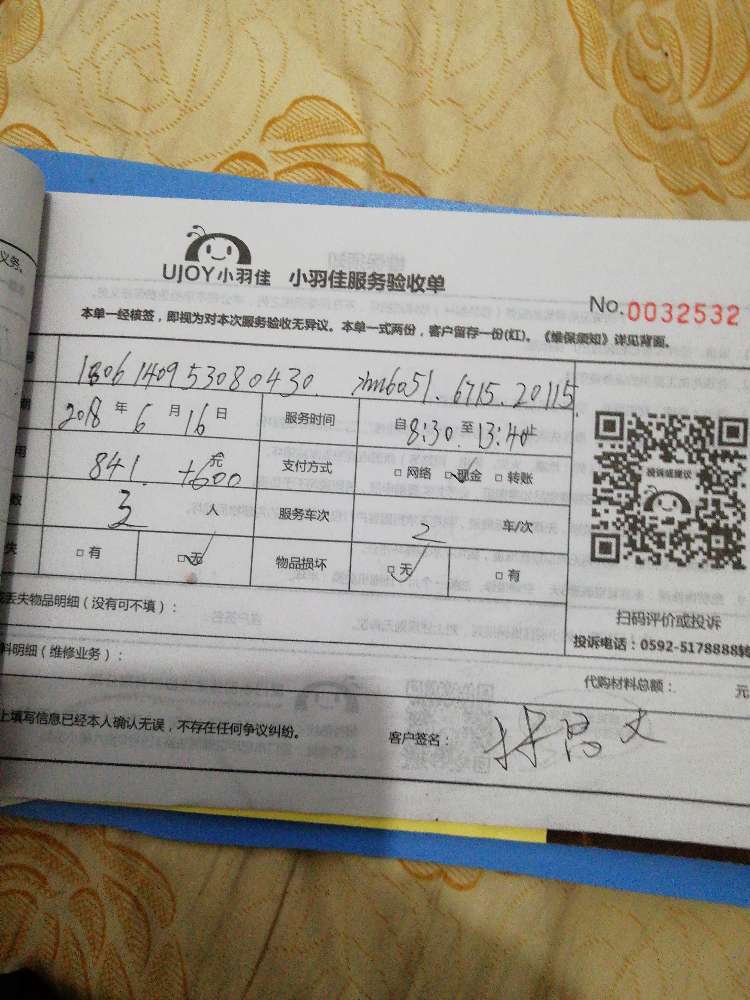 义务。
UJOY小羽佳 小羽佳服务验收单
No.0032532
本单一经核签，即视为对本次服务验收无异议。本单一式两份，客户留存一份(红)。《维保须知》详见背面。
号 1806140953080430. xm6a51. 6715. 20115
期 2018年6月16日 服务时间 自8:30至13:40止
用 841. +600元 支付方式 □网络 □现金 □转账
数 3人 服务车次 2 车/次
失 □有 □无 物品损坏 □无 □有
投诉或建议
扫码评价或投诉
投诉电话：0592-5178888转
丢失物品明细（没有可不填）：
料明细（维修业务）：
代购材料总额： 元
上填写信息已经本人确认无误，不存在任何争议纠纷。
客户签名：